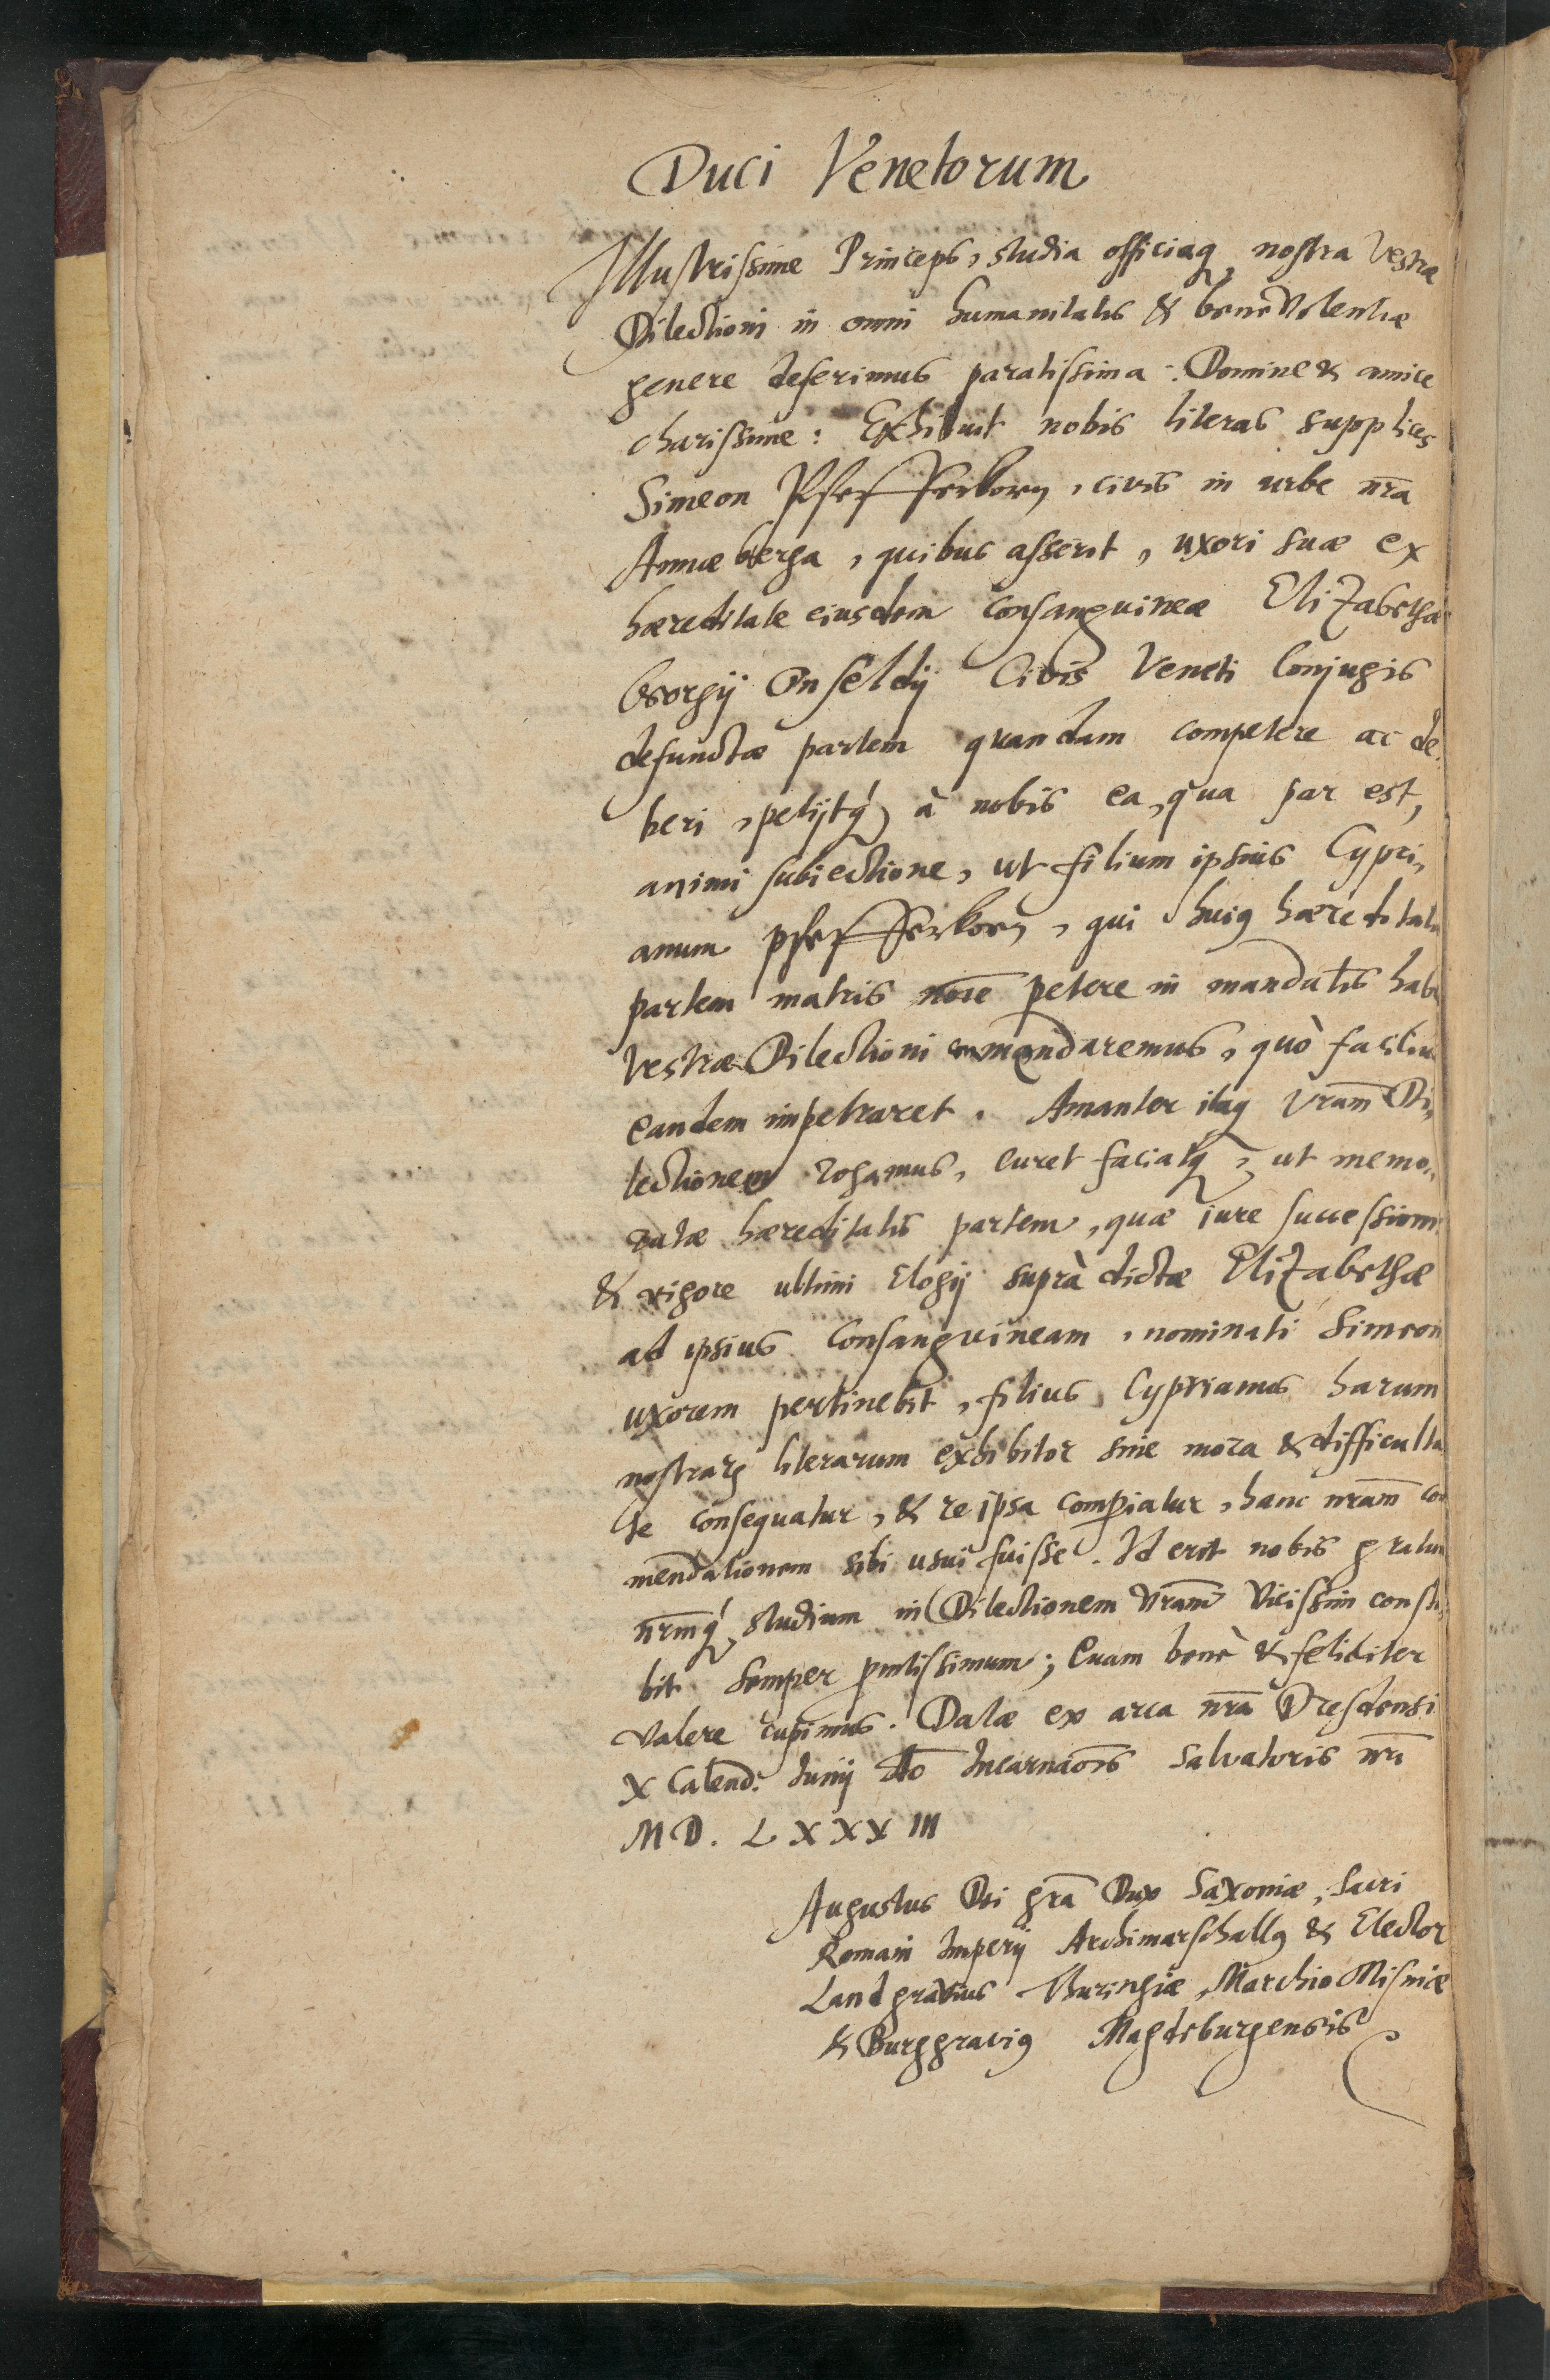 Duci Venetorum
Illustrissime Princeps, studia officiaq nostra Vestræ
Dilectioni in omni humanitatis & beneVolentiæ
genere deferimus paratissima. Domine & amice
charissime: Exhibuit nobis literas supplices
Simeon Pfefferkorn, civis in urbe nr̄a
Annæberga, quibus asserit, uxori suæ ex
hæreditate eiusdem consanguineæ Elizabethæ
Georgij Onfeldij Civis Veneti Conjugis
defunctæ partem quandam competere ac de,
beri, petijtq́ à nobis ea, qua par est,
animi subiectione, ut filium ipsius Cypri,
anum Pfefferkorn, qui huiq hæreditatis
partem matris noīe petere in mandatis habe
Vestræ Dilectioni commendaremus, quò facilius
eandem impetraret. Amanter itaq Vr̄am Di,
lectionem rogamus, curet faciatq, ut memo,
ratæ hæreditatis partem, quæ iure successionis
& vigore ultimi Elogij suprà dictæ Elizabethæ
ad ipsius Consanguineam, nominati Simeon
uxorem pertinebit, filius Cyprianus harum
nostrarꝝ literarum exhibitor sine mora & difficulta
te consequatur, & re ipsa comperiatur, hanc nr̄am com
mendationem sibi usui fuisse. Id erit nobis gratum
nr̄mq́ studium in Dilectionem Vr̄am Vicissim consta,
bit semper promtissimum; Quam benè & feliciter
valere cupimus. Datæ ex arca nr̄a Dresdensi
X Calend: Junij Aō Incarnaōis Salvatoris nr̄i
MD. LXXXIII
Augustus Dei gr̄a Dux Saxoniæ, Sacri
Romani Imperij Archimarschallq & Elector
Landgravius Thuringiæ, Marchio Misniæ
& Burggraviq Magdeburgensis